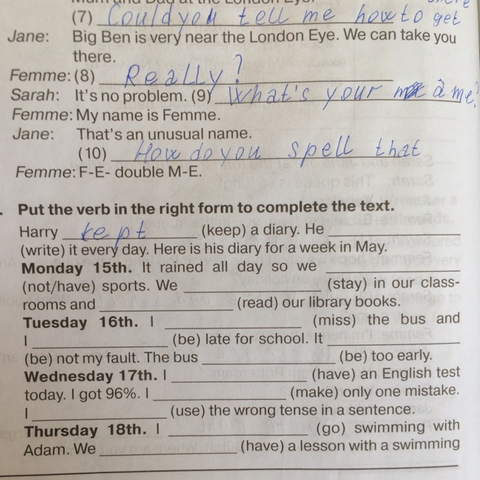 Mum and Dad at the London Eye.
(7) Could you tell me how to get there
Jane: Big Ben is very near the London Eye. We can take you
there.
Femme: (8) Really?
Sarah: It's no problem. (9) What's your name?
Femme: My name is Femme.
Jane: That's an unusual name.
(10) How do you spell that
Femme: F-E- double M-E.
Put the verb in the right form to complete the text.
Harry kept (keep) a diary. He
(write) it every day. Here is his diary for a week in May.
Monday 15th. It rained all day so we
(not/have) sports. We (stay) in our class-
rooms and (read) our library books.
Tuesday 16th. I (miss) the bus and
I (be) late for school. It
(be) not my fault. The bus (be) too early.
Wednesday 17th. I (have) an English test
today. I got 96%. I (make) only one mistake.
I (use) the wrong tense in a sentence.
Thursday 18th. I (go) swimming with
Adam. We (have) a lesson with a swimming